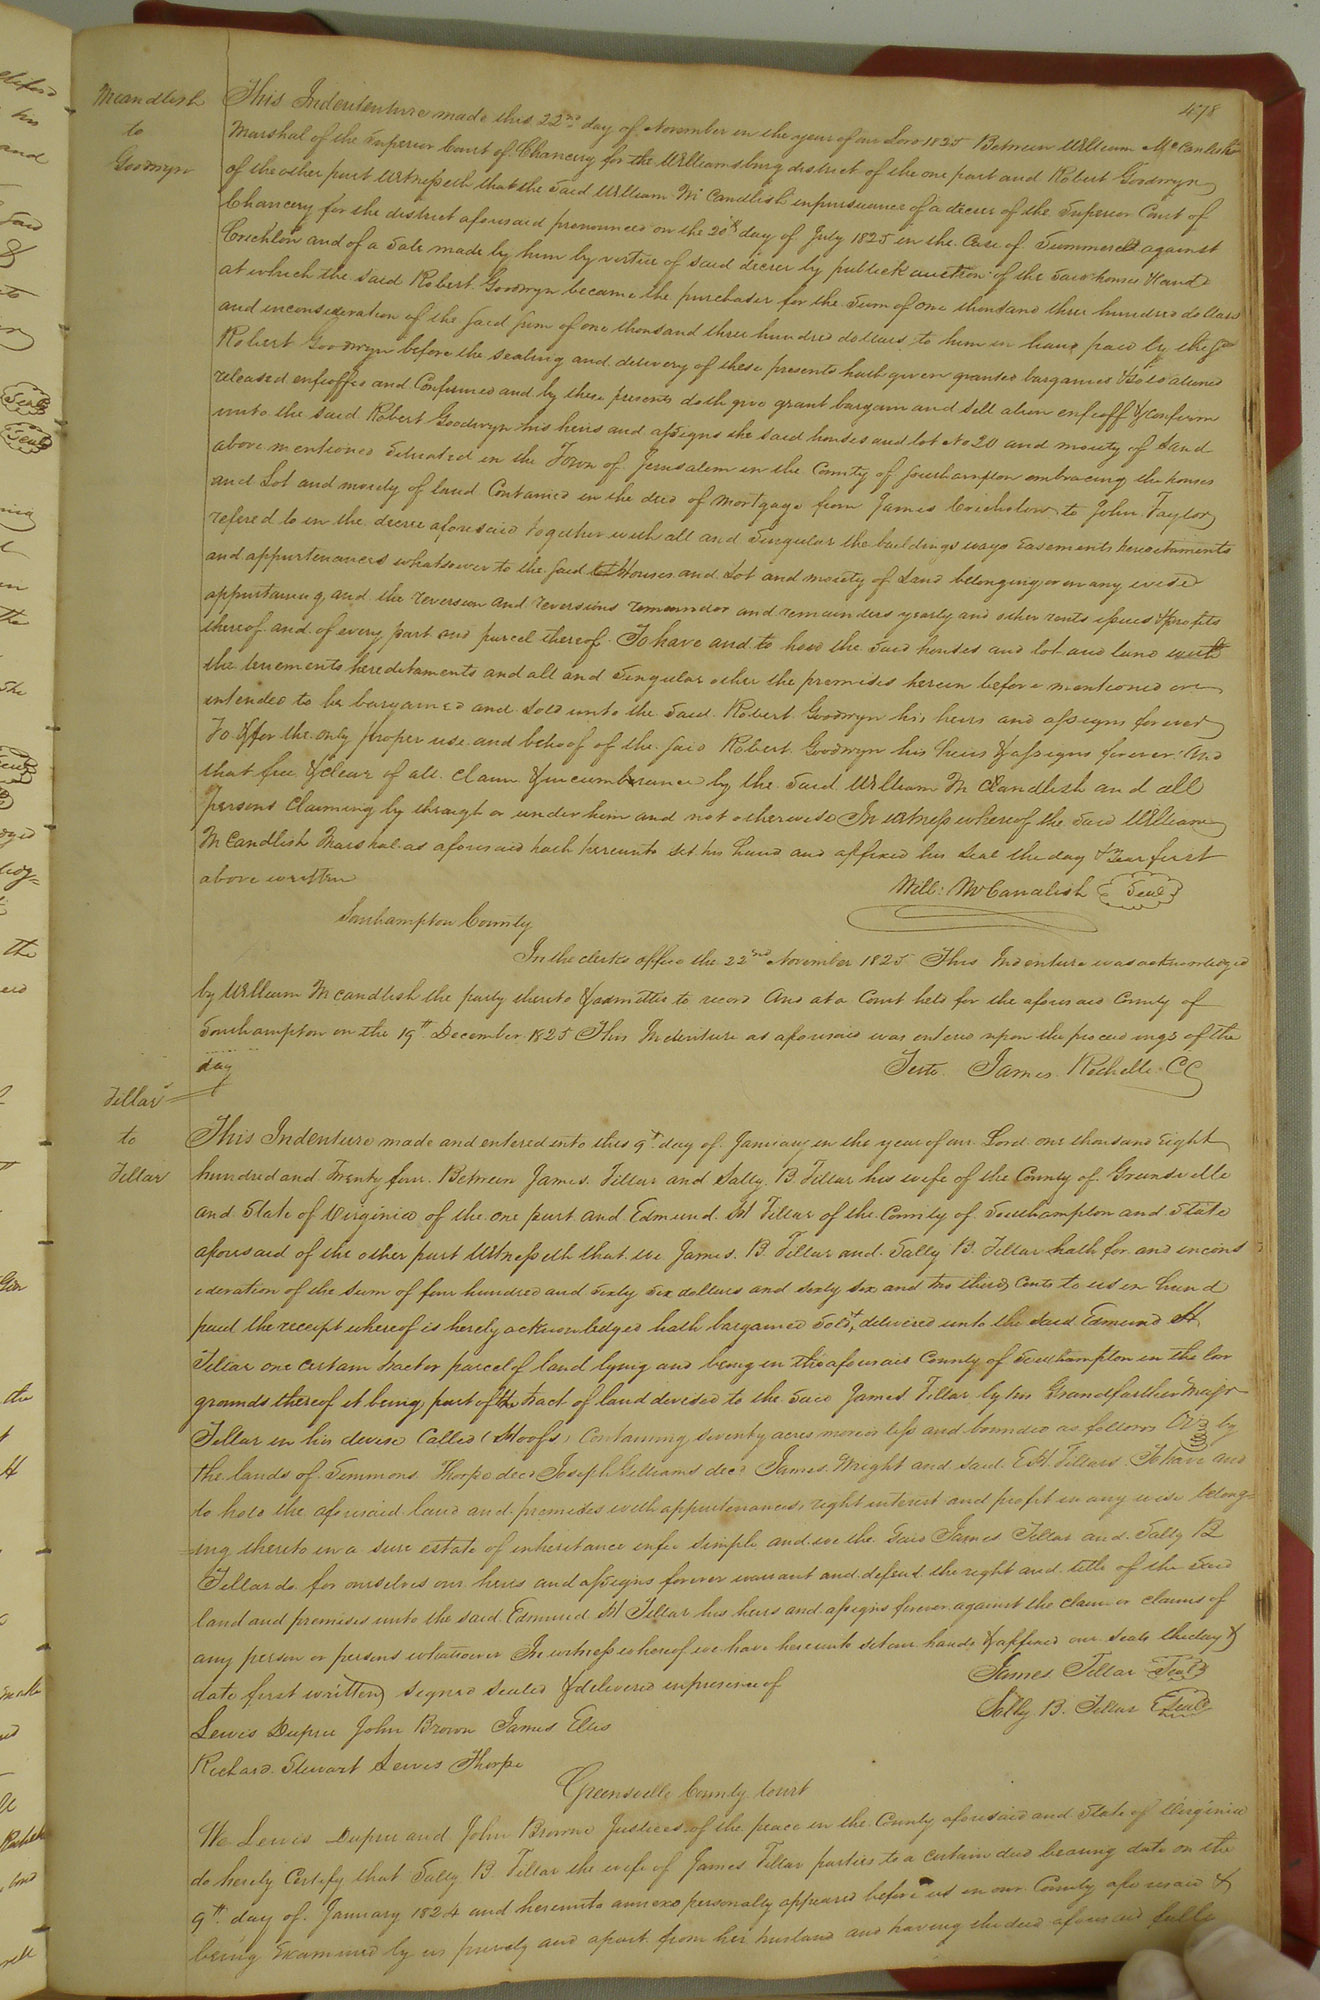 478
Mcandlish
to
Goodwyn
This Indententure made this 22nd day of November in the year of our Lord 1825 Between William Mc Canlish
Marshal of the Superior Court of Chancery for the Williamsburg district of the one part and Robert Goodwyn
of the other part Witnesseth that the said William Mc Candlish inpursuance of a decree of the Superior Court of
Chancery for the district aforesaid pronounced on the 20th day of July 1825 in the Case of Summerell against
Crichlow and of a Sale made by him by virtue of said decree by publick auction of the said houses & land
at which the said Robert Goodwyn became the purchaser for the Sum of one thousand three hundred dollars
and inconsideration of the said sum of one thousand three hundred dollars to him in hand paid by the sd
Robert Goodwyn before the sealing and delivery of these presents hath given granted bargained & sold aliened
released enfeoffed and Confirmed and by these presents doth give grant bargain and sell alien enfeoff & confirm
unto the said Robert Goodwyn his heirs and assigns the said houses and lot No 20 and moiety of Land
above mentioned Situated in the Town of Jerusalem in the County of Southampton embracing the houses
and Lot and moiety of land Contained in the deed of Mortgage from James Crichlow to John Taylor
refered to in the decree aforesaid together with all and Singular the buildings ways Easements hereditaments
and appurtenances whatsoever to the said Houses and Lot and moiety of Land belonging or in any wise
appurtaining and the reversion and reversions remainder and remainders yearly and other rents issues & profits
thereof and of every part and parcel thereof To have and to hold the said houses and lot and land with
the tenements hereditaments and all and Singular other the premises herein before mentioned or
intended to be bargained and Sold unto the Said Robert Goodwyn his heirs and assigns forever
To & for the only proper use and behoof of the said Robert Goodwyn his heirs & assigns forever And
that free & clear of all claim & incumbrance by the said William Mc Candlish and all
persons claiming by through or under him and not otherwise In witness whereof the said William
McCandlish Marshal as aforesaid hath hereunto set his hand and affixed his seal the day & year first
above written
Will: McCandlish Seal
Southampton County
In the clerks office the 22nd November 1825 This Indenture was acknowledged
by William Mcandlish the party thereto & admitted to record And at a Court held for the aforesaid County of
Southampton on the 19th December 1825 This Indenture as aforesaid was entered upon the proceedings of the
day
Teste James Rochelle CC
Tillar
to
Tillar
This Indenture made and entered into this 9th day of January in the year of our Lord one thousand Eight
hundred and Twenty four Between James Tillar and Sally B Tillar his wife of the County of Greensville
and State of Virginia of the one part and Edmund H Tillar of the County of Southampton and State
aforesaid of the other part Witnesseth that we James B Tillar and Sally B Tillar hath for and incons
ideration of the sum of four hundred and sixty six dollars and sixty six and two thirds Cents to us in hand
paid the receipt whereof is hereby acknowledged hath bargained sold & delivered unto the said Edmund H
Tillar one certain tract or parcel of land lying and being in the aforesaid County of Southampton in the low
grounds thereof it being part of the tract of land devised to the said James Tillar by his Grandfarther Major
Tillar in his devise Called ( Containing seventy acres more or less and bounded as follows by
the lands of Simmons Thorpe decd Joseph Gilliams decd James Wright and said E H Tillars To have and
to hold the aforesaid land and premises with appurtenances right interest and profit in any wise belong=
=ing thereto in a sure estate of inheritance infee simple and we the said James Tillar and Sally B
Tillar do for ourselves our heirs and assigns forever warrant and defend the right and title of the said
land and premises unto the said Edmund H Tillar his heirs and assigns forever against the claim or claims of
any person or persons whatsoever In witness whereof we have hereunto set our hands & affixed our seals the day &
date first written signed sealed & delivered inpresence of
James Tillar Seal
Sally B. Tillar Seal
Lewis Dupree John Brown James Ellis
Richard Stewart Lewis Thorpe
Greensville County Court
We Lewis Dupree and John Browne Justices of the peace in the County aforesaid and State of Virginia
do hereby Certify that Sally B Tillar the wife of James Tillar parties to a certain deed bearing date on the
9th day of January 1824 and hereunto annexd personally appeared before us in our County aforesaid &
being Examined by us privily and apart from her husband and having the deed aforesaid fully